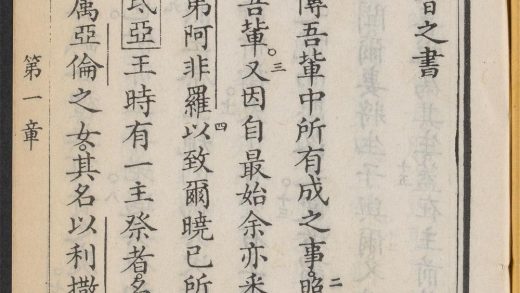 音之書
傳吾輩中所有成之事。二照
吾輩。三又因自最始余亦悉
弟阿非羅四以致爾曉已所
氐亞王時有一主祭者。名
屬亞倫之女。其名以利撒
第一章